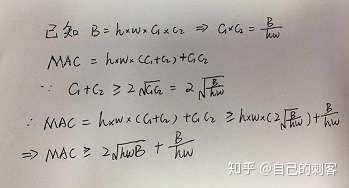 已知 B = h×w×C₁×C₂ ⇒ C₁×C₂ = B/hw
MAC = h×w×(C₁+C₂)+C₁C₂
∵ C₁+C₂ ≥ 2√C₁C₂ = 2√(B/hw)
∴ MAC = h×w×(C₁+C₂)+C₁C₂ ≥ h×w×(2√(B/hw))+B/hw
⇒ MAC ≥ 2√hwB + B/hw
知乎 @自己的刺客